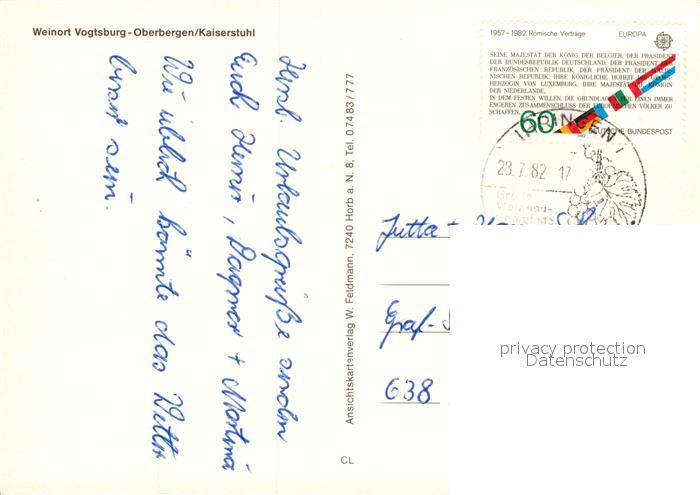 Weinort Vogtsburg - Oberbergen/Kaiserstuhl
1957-1982 Römische Verträge EUROPA
SEINE MAJESTÄT DER KÖNIG DER BELGIER, DER PRÄSIDENT
DER BUNDESREPUBLIK DEUTSCHLAND, DER PRÄSIDENT DER
FRANZÖSISCHEN REPUBLIK, DER PRÄSIDENT DER ITALIE-
NISCHEN REPUBLIK, IHRE KÖNIGLICHE HOHEIT DIE GROSS-
HERZOGIN VON LUXEMBURG, IHRE MAJESTÄT DIE KÖNIGIN
DER NIEDERLANDE,
IN DEM FESTEN WILLEN, DIE GRUNDLAGEN FÜR EINEN IMMER
ENGEREN ZUSAMMENSCHLUSS DER EUROPÄISCHEN VÖLKER ZU
SCHAFFEN
60
DEUTSCHE BUNDESPOST
IHRINGEN 1
28.7.82 17
Herzl. Urlaubsgrüße senden
Euch Heinz, Dagmar + Martina
Wie üblich könnte das Wetter
besser sein.
Ansichtskartenverlag W. Feldmann, 7240 Horb a. N. 8, Tel. 0 74 83 / 7 77
CL
Jutta +
Graf-
638
privacy protection
Datenschutz